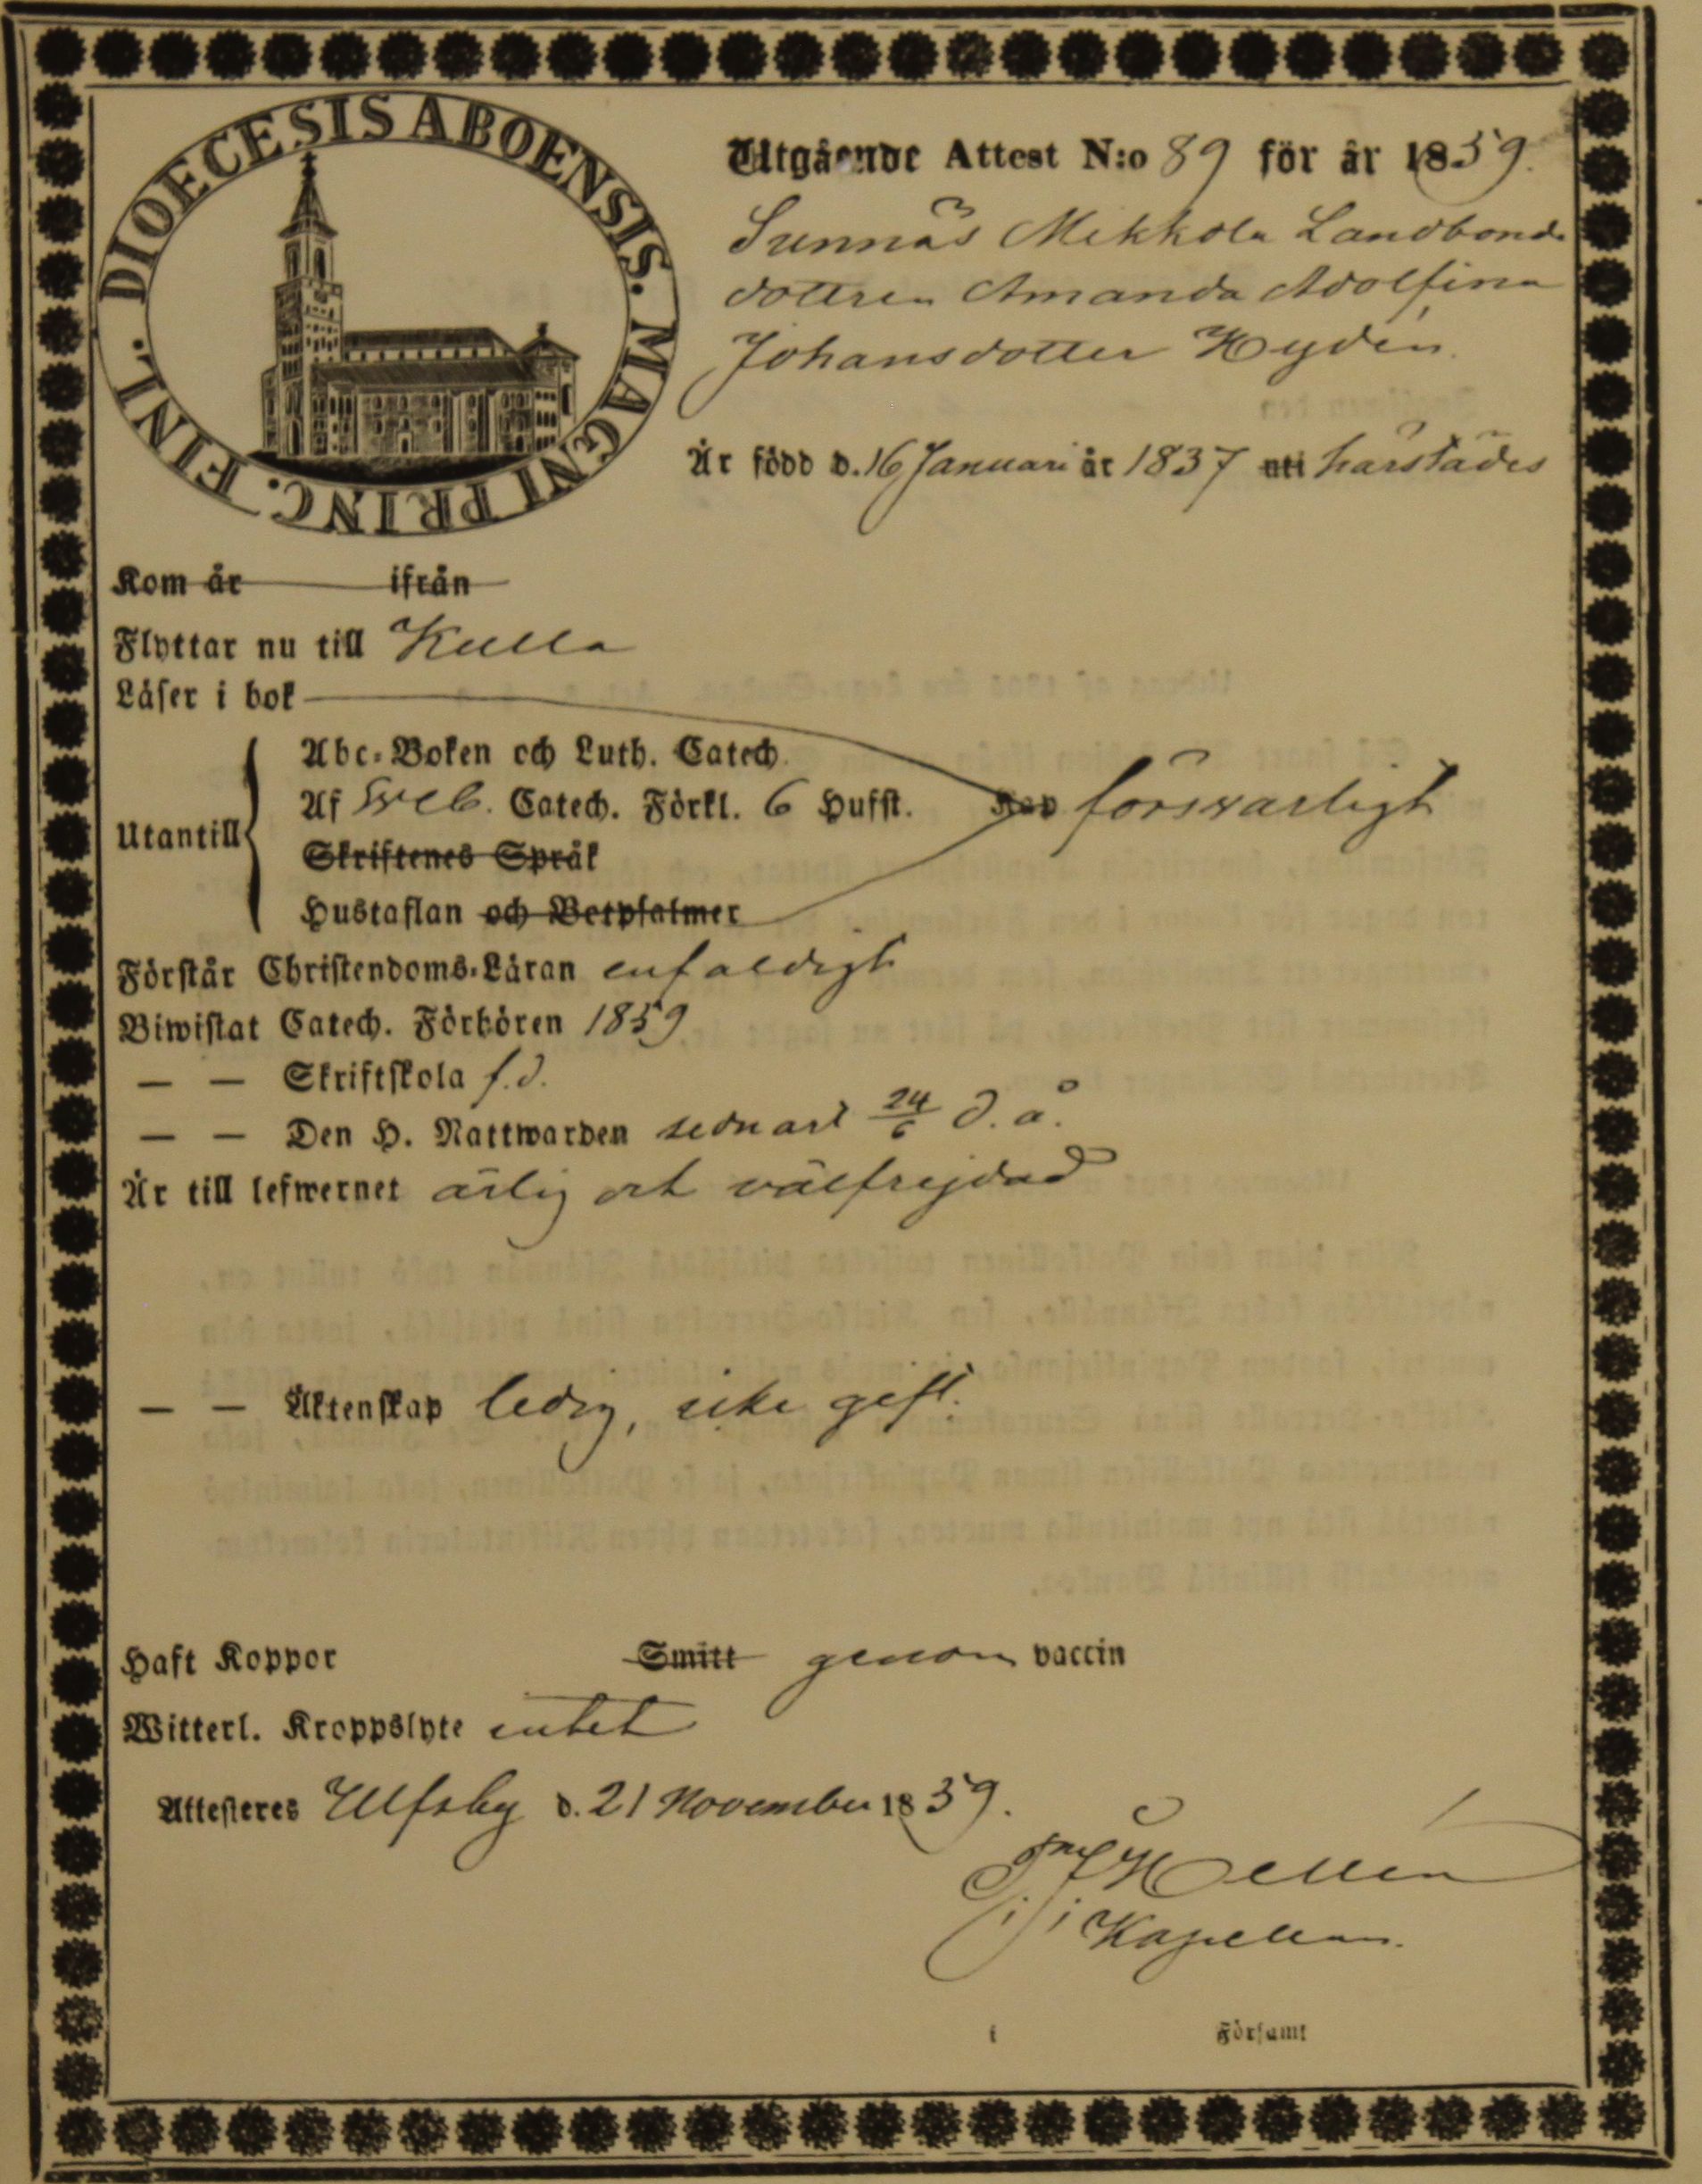 DIOECESIS ABOENSIS. MAGNI PRINC. FINL.
Utgående Attest N:o 89 för år 1859.
Sunnäs Mikkola Landbonde
dottren Amanda Adolfina
Johansdotter Hydén.
Är född d. 16 Januari år 1837 uti härstädes
Kom år ifrån
Flyttar nu till Kulla
Läser i bok
Abc-Boken och Luth. Catech.
Utantill Af Sveb. Catech. Förkl. 6 Hufst. Kap försvarligt
Skriftenes Språk
Hustaflan och Botpsalmer
Förstår Christendoms-Läran enfaldigt
Biwistat Catech. Förhören 1859
— — Skriftskola f.d.
— — Den H. Nattwarden sednast 24/6 d. å.
Är till lefwernet ärlig och välfrejdad
— — Äktenskap ledig, icke gift.
Haft Koppor Smitt genom vaccin
Witterl. Kroppslyte intet
Attesteres Ulfsby d. 21 November 1859.
Hellén
Kapellan.
i Församl